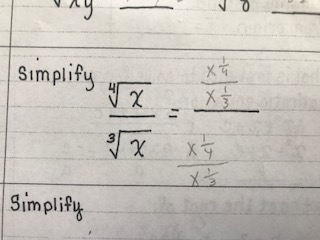 √xy √8
Simplify ⁴√x / ³√x = x^1/4 / x^1/3
x^1/4 / x^1/3
Simplify